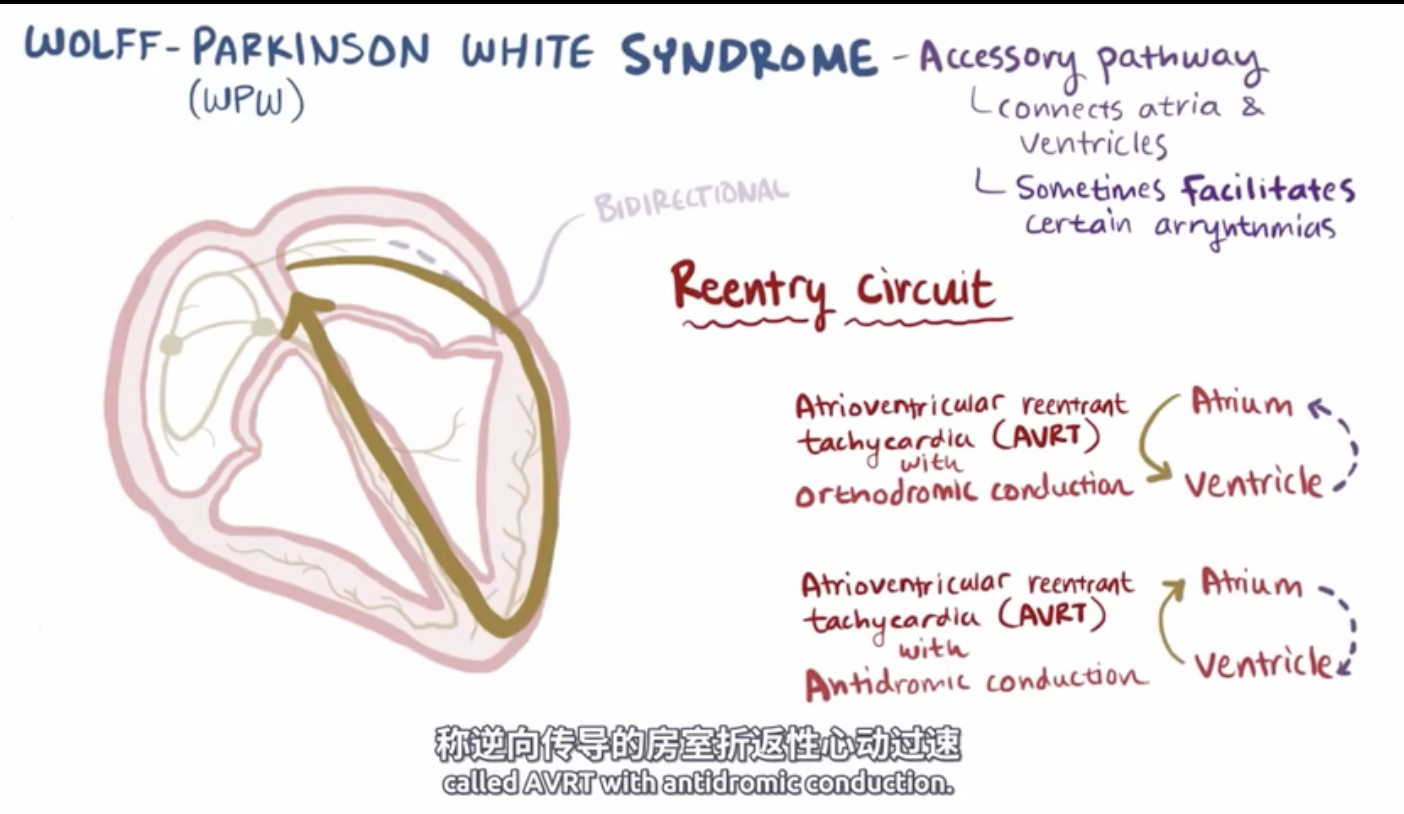 WOLFF-PARKINSON WHITE SYNDROME - Accessory pathway
(WPW)
connects atria &
ventricles
Sometimes facilitates
certain arryhthmias
BIDIRECTIONAL
Reentry circuit
Atrioventricular reentrant
tachycardia (AVRT)
with
orthodromic conduction
Atrium
ventricle
Atrioventricular reentrant
tachycardia (AVRT)
with
Antidromic conduction
Atrium
ventricle
称逆向传导的房室折返性心动过速
called AVRT with antidromic conduction.